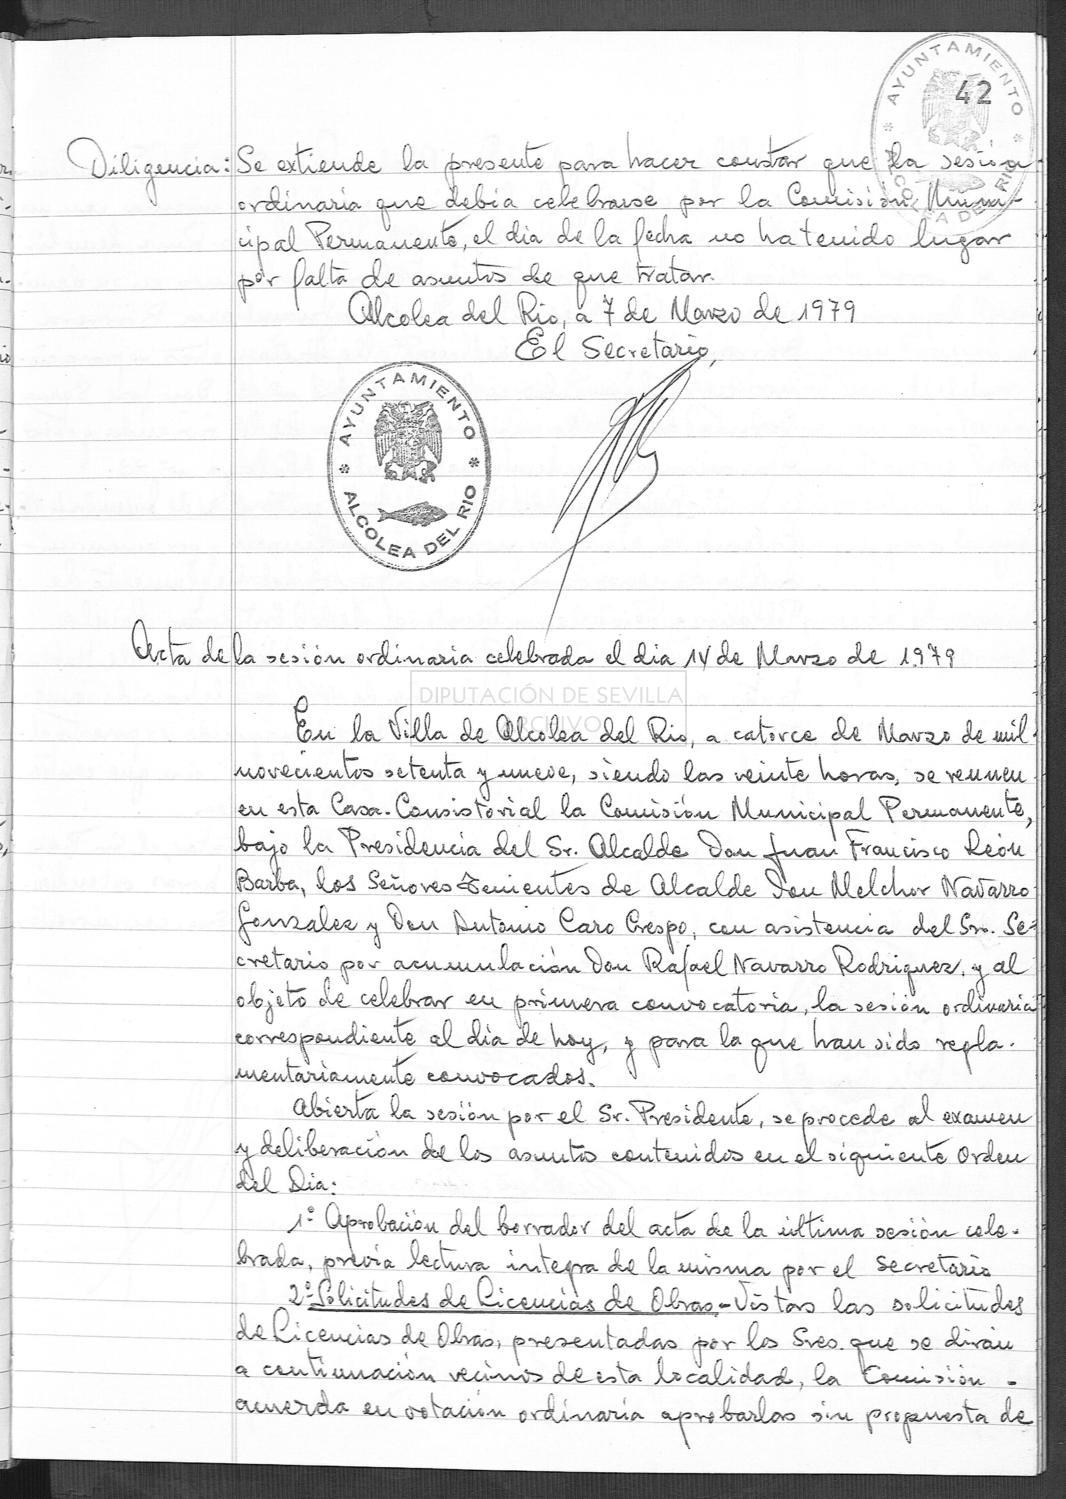 AYUNTAMIENTO
ALCOLEA DEL RIO
42
Diligencia: Se extiende la presente para hacer constar que la sesión
ordinaria que debia celebrarse por la Comisión Muni-
cipal Permanente, el dia de la fecha no ha tenido lugar
por falta de asuntos de que tratar.
Alcolea del Rio, a 7 de Marzo de 1979
El Secretario,
AYUNTAMIENTO
ALCOLEA DEL RIO
Acta de la sesión ordinaria celebrada el dia 14 de Marzo de 1979
DIPUTACIÓN DE SEVILLA
ARCHIVO
En la Villa de Alcolea del Rio, a catorce de Marzo de mil
novecientos setenta y nueve, siendo las veinte horas, se reunen
en esta Casa-Consistorial la Comisión Municipal Permanente,
bajo la Presidencia del Sr. Alcalde Don Juan Francisco León
Barba, los Señores Tenientes de Alcalde Don Melchor Navarro
Gonzalez y Don Antonio Caro Crespo, con asistencia del Sr. Se-
cretario por acumulación Don Rafael Navarro Rodriguez, y al
objeto de celebrar en primera convocatoria, la sesión ordinaria
correspondiente al dia de hoy, y para la que han sido regla-
mentariamente convocados.
Abierta la sesión por el Sr. Presidente, se procede al examen
y deliberación de los asuntos contenidos en el siguiente Orden
del Dia:
1º Aprobación del borrador del acta de la última sesión cele-
brada, previa lectura integra de la misma por el Secretario
2º Solicitudes de Licencias de Obras.- Vistas las solicitudes
de Licencias de Obras, presentadas por los Sres. que se dirán
a continuación vecinos de esta localidad, la Comisión -
acuerda en votación ordinaria aprobarlas sin propuesta de